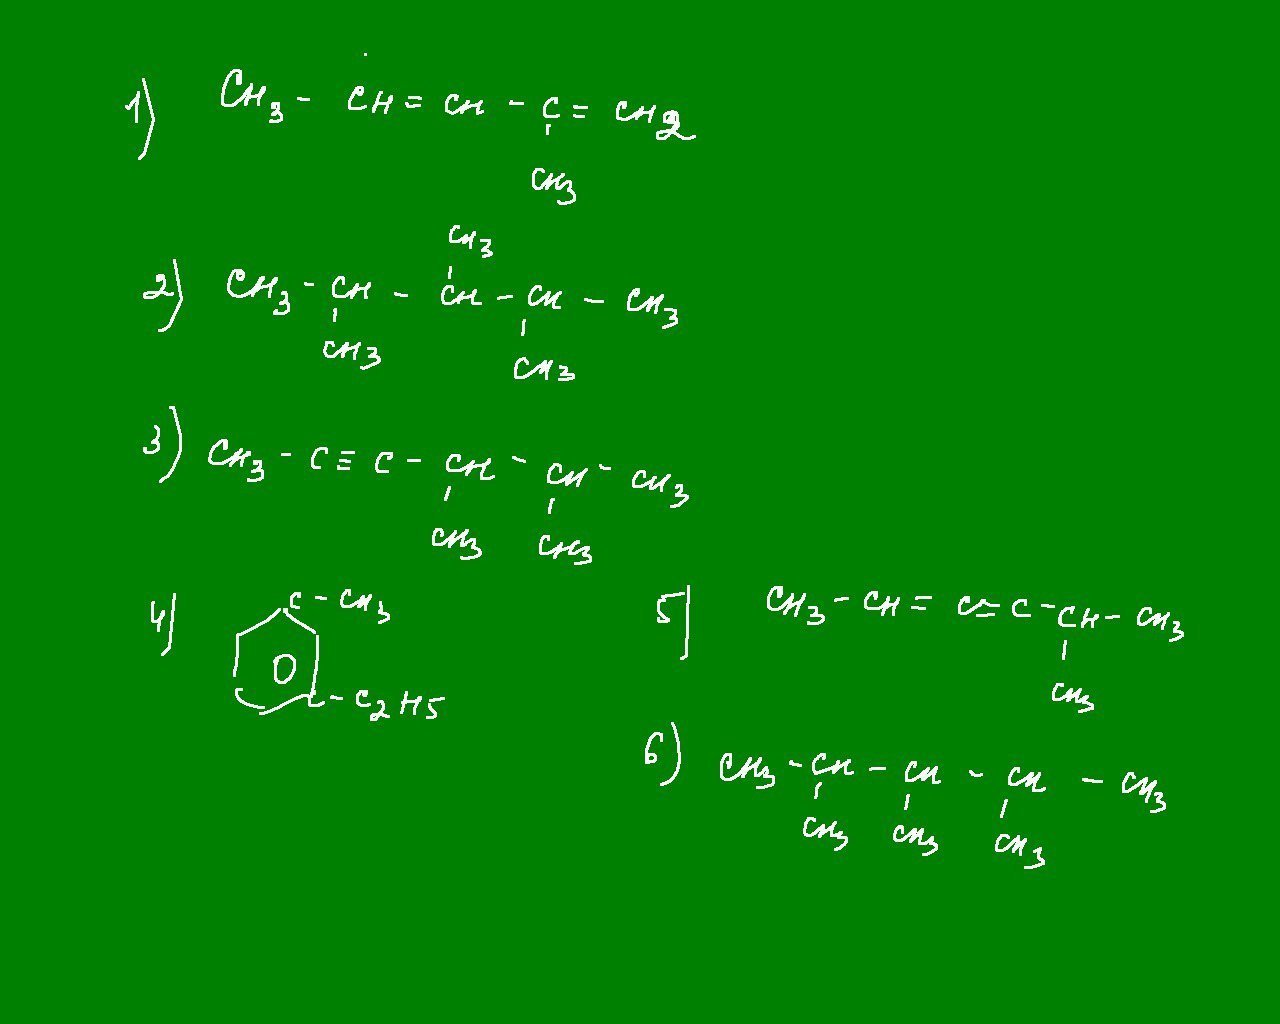 1) CH3 - CH = CH - C = CH2
CH3
CH3
2) CH3 - CH - CH - CH - CH3
CH3 CH3
3) CH3 - C ≡ C - CH - CH - CH3
CH3 CH3
4) C - CH3
C - C2H5
5) CH3 - CH = C = C - CH - CH3
CH3
6) CH3 - CH - CH - CH - CH3
CH3 CH3 CH3